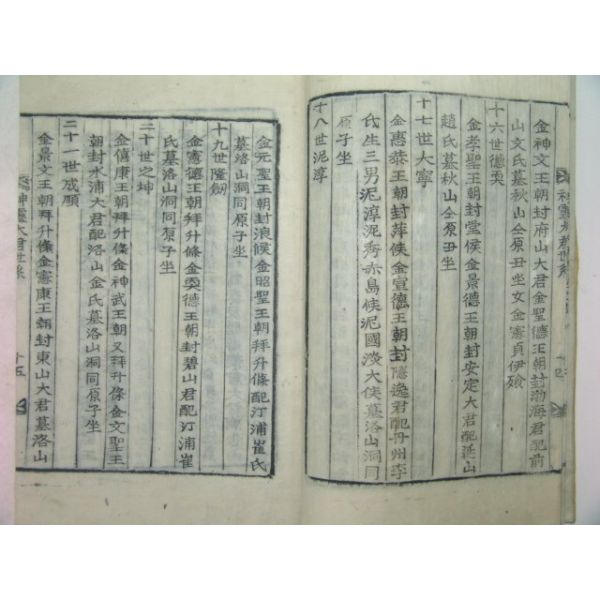 金神文王朝封府山大君金聖德王朝封渤海君配前
山文氏墓秋山仝原丑坐女金憲貞伊飱
十六世德奭
金孝聖王朝封堂侯金景德王朝封安定大君配延山
趙氏墓秋山仝原丑坐
十七世大寧
金惠泰王朝封萍侯金宣德王朝封隱逸君配丹州李
氏生三男泥淳泥秀赤島侯泥國淡大侯墓洛山洞同
原子坐
十八世泥淳
金元聖王朝封浪候金昭聖王朝拜升條配汀浦崔氏
墓洛山洞同原子坐
十九世隆劒
金憲德王朝拜升條金奭德王朝封碧山君配汀浦崔
氏墓洛山洞同原子坐
二十世之坤
金僖康王朝拜升條金神武王朝又拜升條金文聖王
朝封水浦大君配洛山金氏墓洛山洞同原子坐
二十一世成願
金景文王朝拜升條金憲康王朝封東山大君墓洛山
神靈大君世系
十五